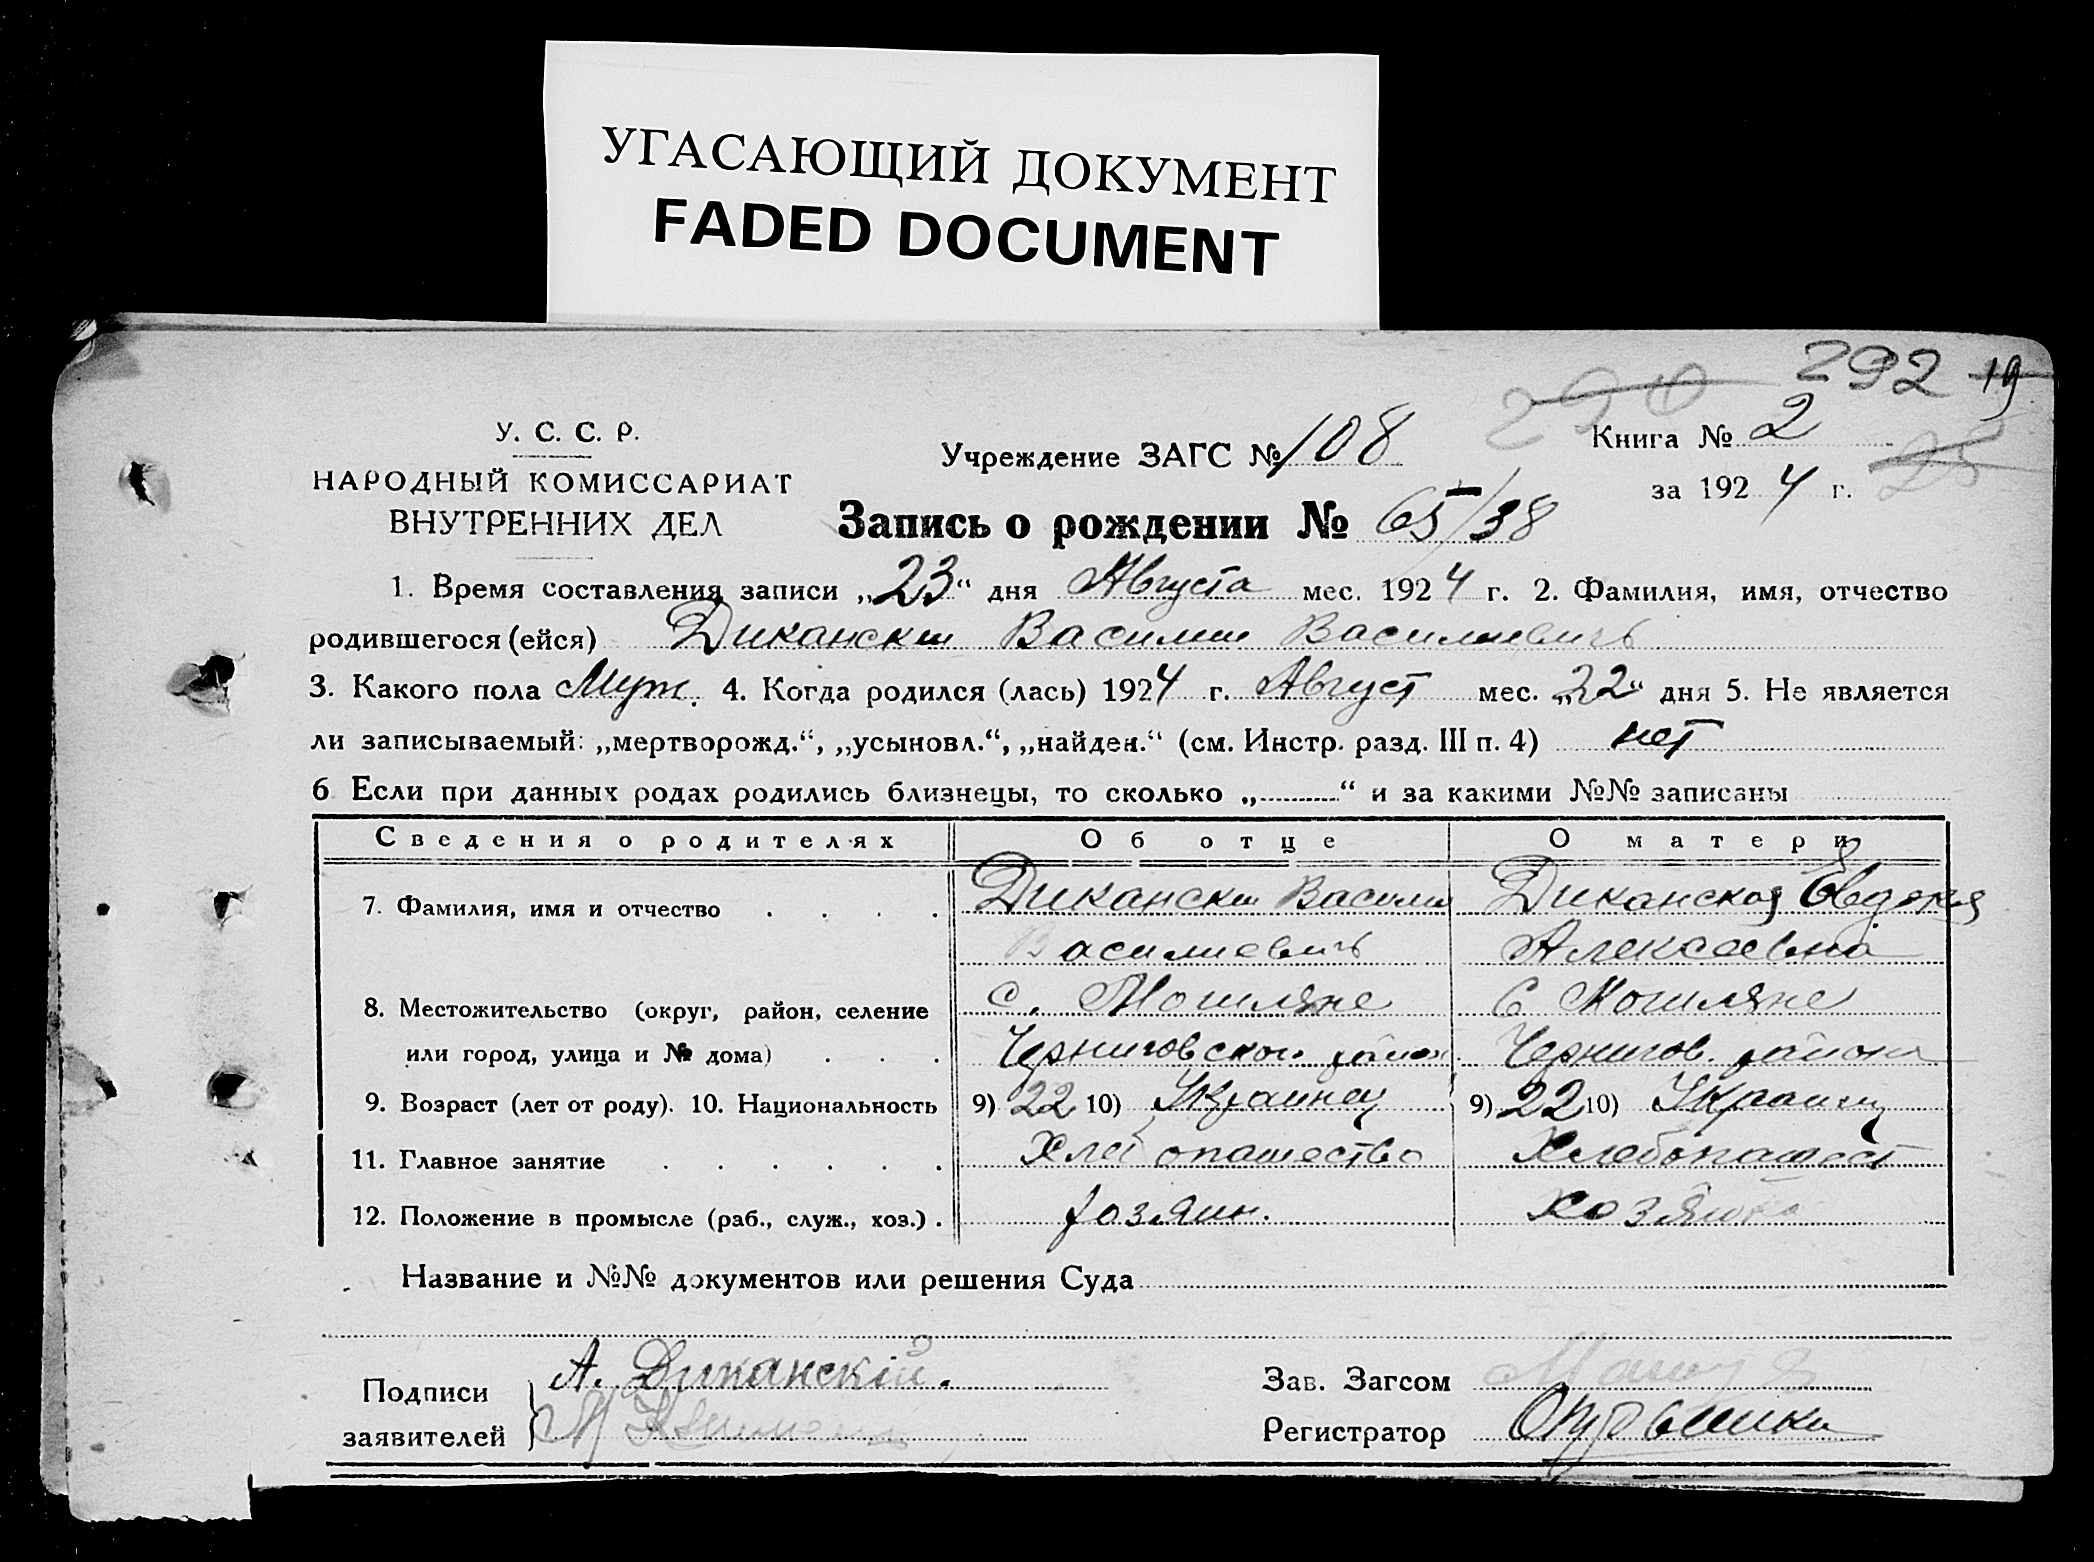 УГАСАЮЩИЙ ДОКУМЕНТ
FADED DOCUMENT
292 19
290
25
У. С. С. Р.
НАРОДНЫЙ КОМИССАРИАТ
ВНУТРЕННИХ ДЕЛ
Учреждение ЗАГС № 108
Книга № 2
за 1924 г.
Запись о рождении № 65/38
1. Время составления записи „23“ дня Августа мес. 1924 г. 2. Фамилия, имя, отчество
родившегося (ейся) Дикански Василии Василиевичь
3. Какого пола Муж. 4. Когда родился (лась) 1924 г. Август мес. „22“ дня 5. Не является
ли записываемый: „мертворожд.“, „усыновл.“, „найден.“ (см. Инстр. разд. III п. 4) нет
6 Если при данных родах родились близнецы, то сколько „..........“ и за какими №№ записаны
Сведения о родителях Об отце О матери
7. Фамилия, имя и отчество . . . . Дикански Василии Диканская Евдокия
Василиевичь Алексеевна
8. Местожительство (округ, район, селение с. Могиляне с Могиляне
или город, улица и № дома) . . . Черниговского район. Чернигов. района
9. Возраст (лет от роду). 10. Национальность 9) 22 10) Украинец 9) 22 10) Украинц
11. Главное занятие . . . . . . Хлебопашество Хлебопашест
12. Положение в промысле (раб., служ., хоз.) . хозяин. хозяйка
Название и №№ документов или решения Суда
Подписи
заявителей
А. Диканскій.
Зав. Загсом
Регистратор